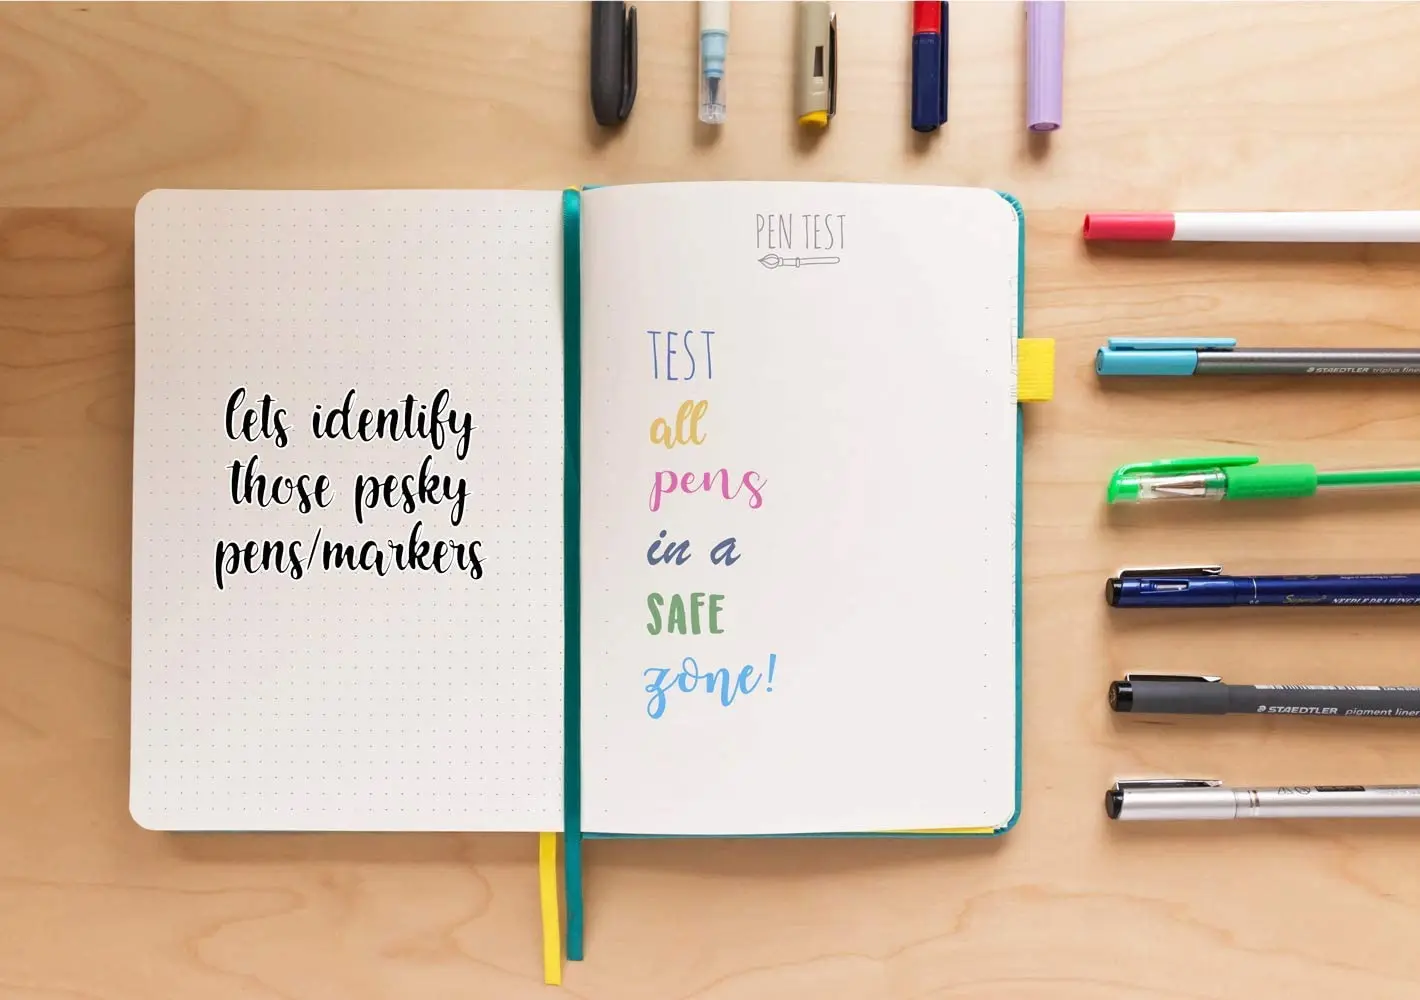 PEN TEST
lets identify
those pesky
pens/markers
TEST
all
pens
in a
SAFE
zone!
STAEDTLER triplus fine
NEEDLE DRAWING
STAEDTLER pigment liner